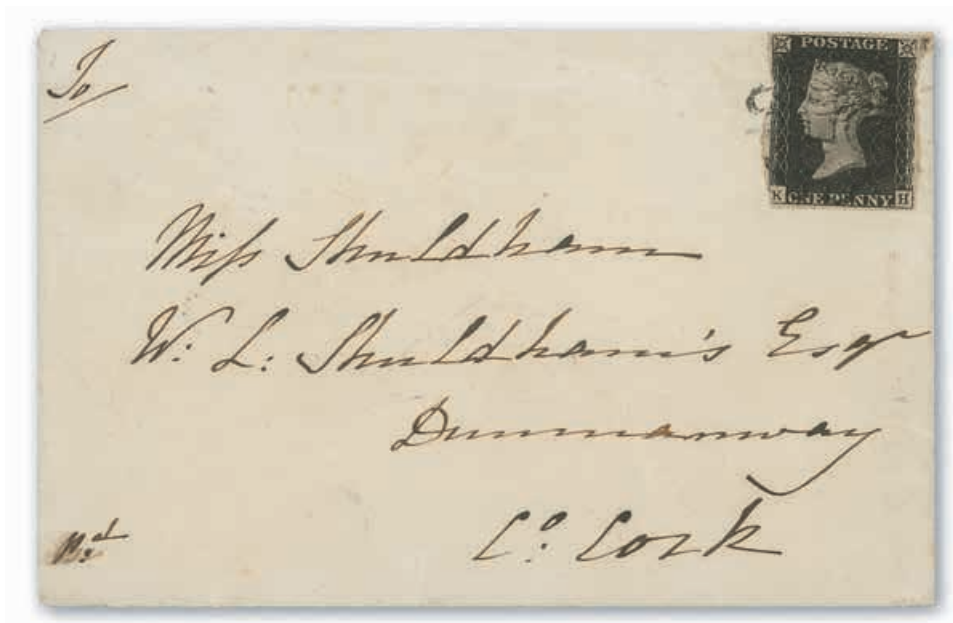 To
POSTAGE
K ONE PENNY H
Miss Shuldham
W. L. Shuldham's Esqr
Dunmanway
Co. Cork